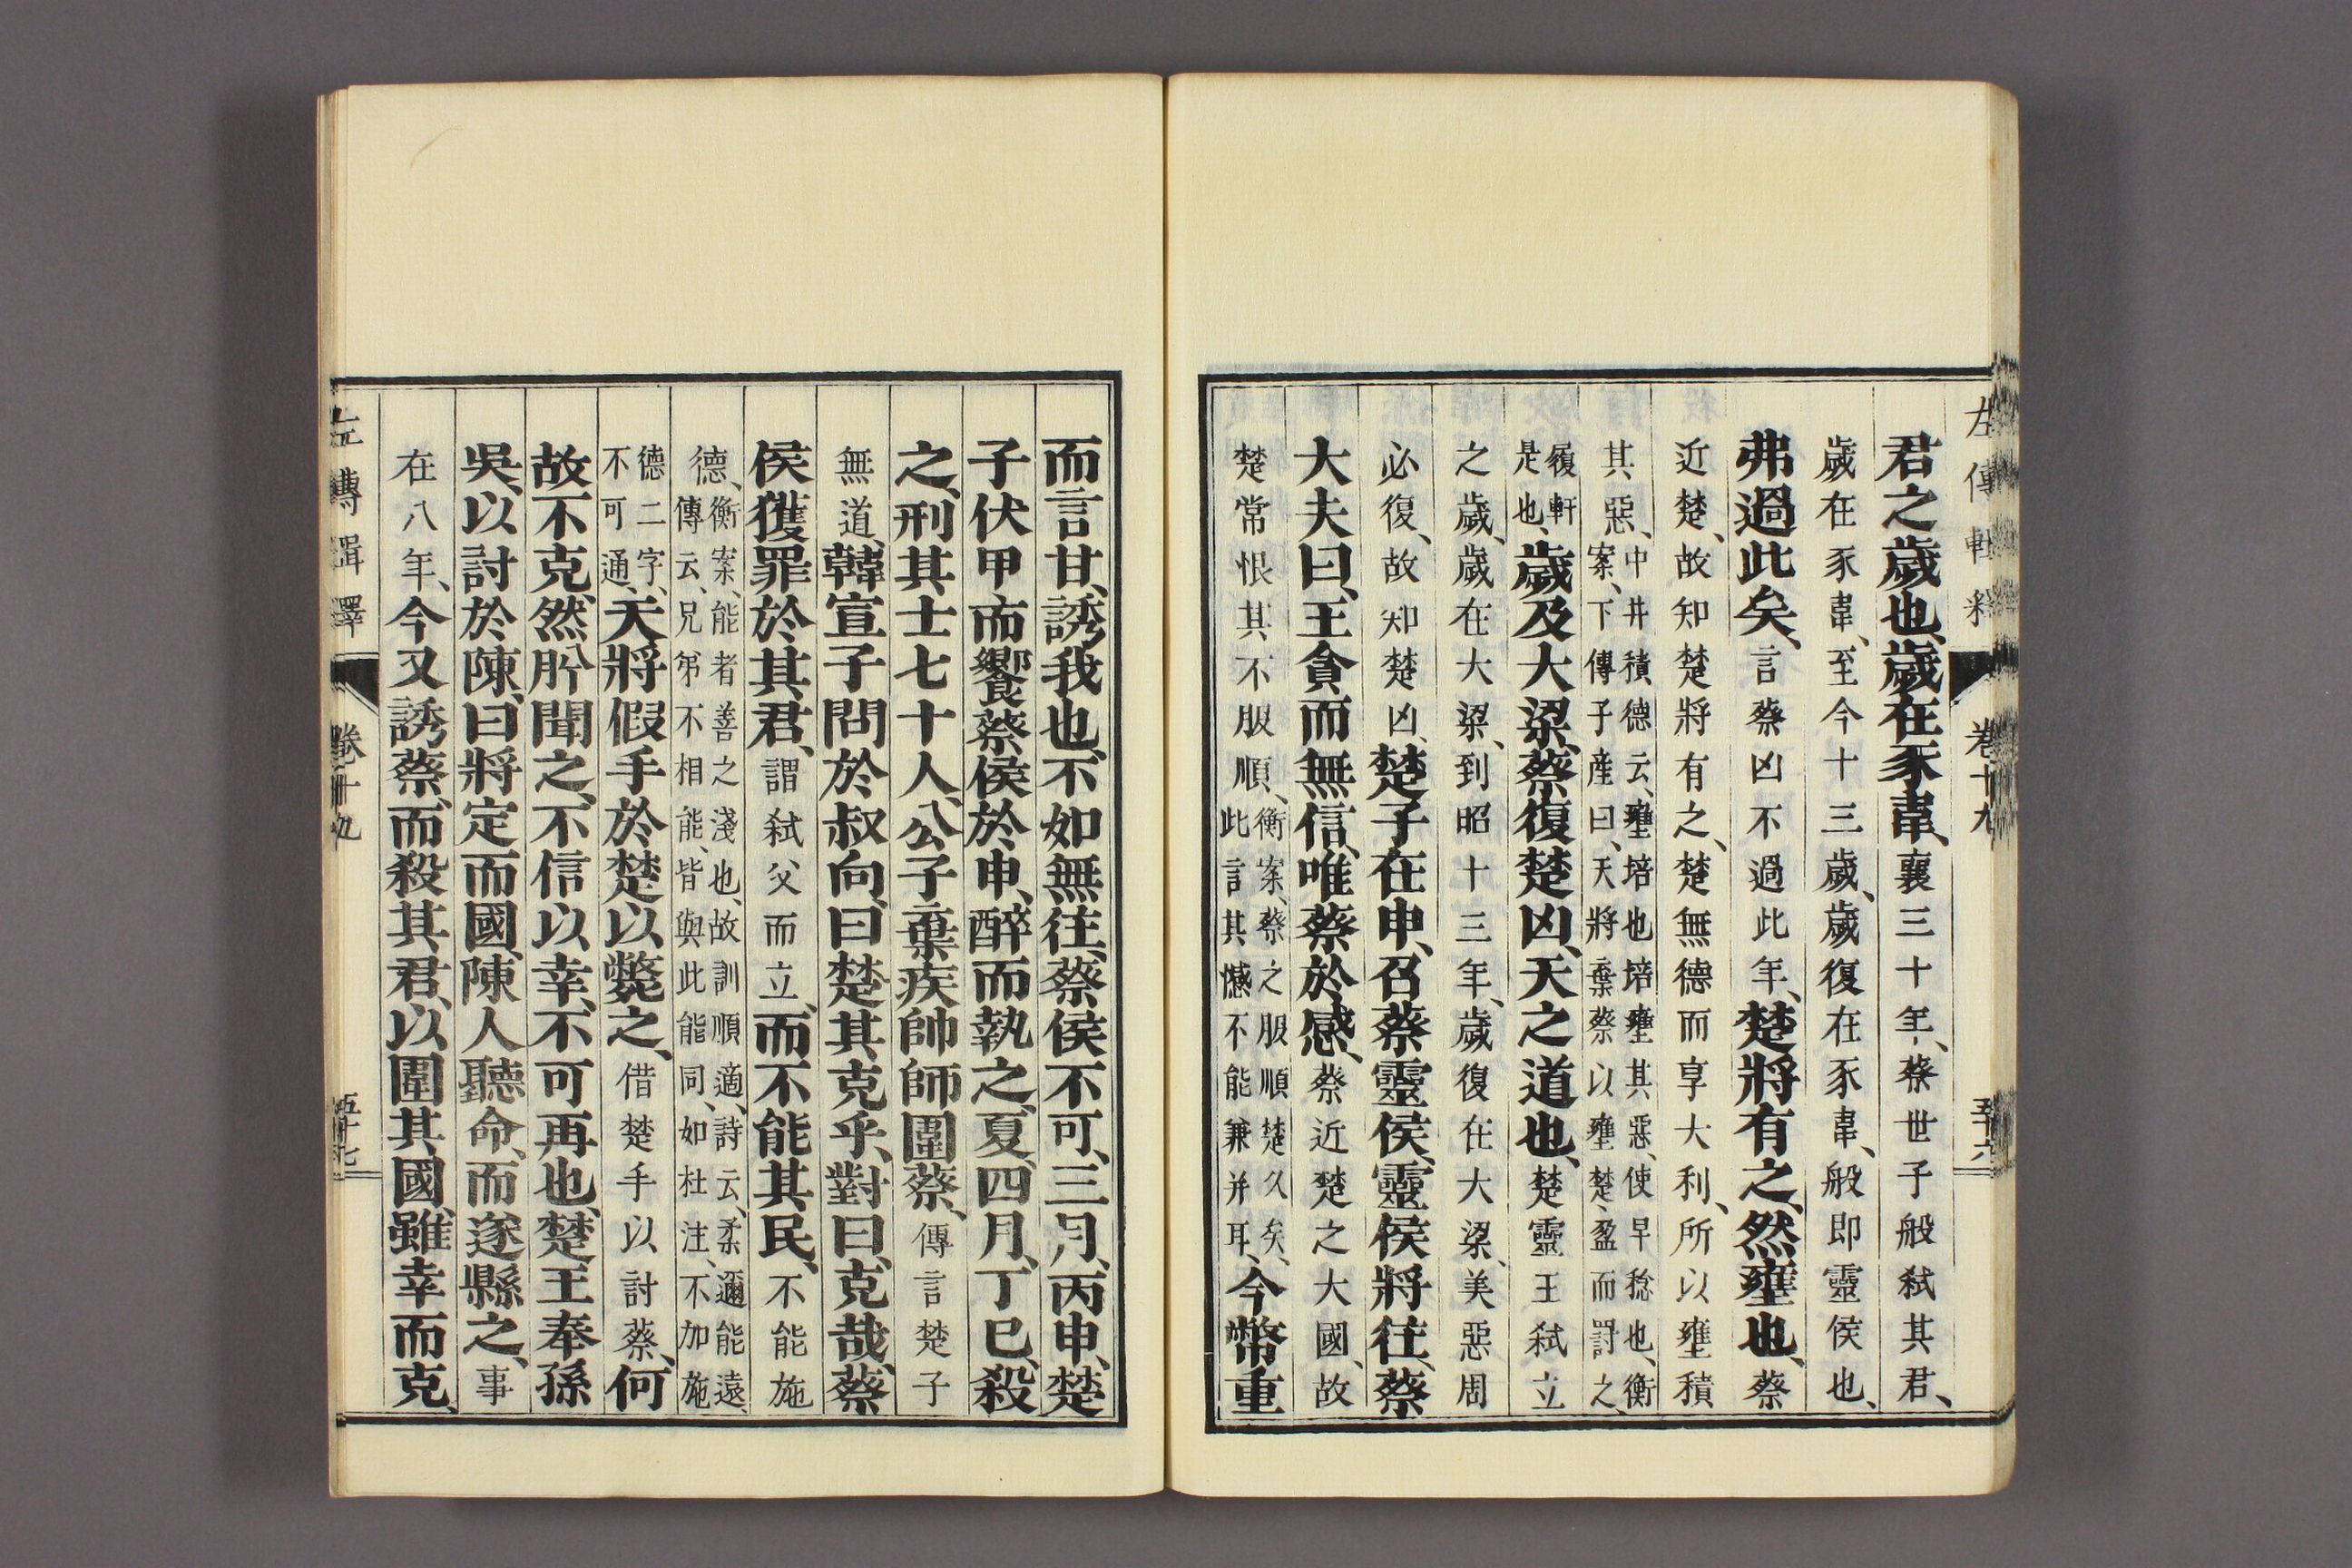 左傳輯釋 卷十九 五十六
君之歲也、歲在豕韋、襄三十年、蔡世子般弒其君、
歲在豕韋、至今十三歲、歲復在豕韋、般即靈侯也、
弗過此矣、言蔡凶不過此年、楚將有之、然壅也、蔡
近楚、故知楚將有之、楚無德而享大利、所以壅積
其惡、中井積德云、壅培也、培壅其惡、使早稔也、衡
案、下傳子産曰、天將棄蔡以壅楚、盈而罰之、
履軒
是也、歲及大梁、蔡復楚凶、天之道也、楚靈王弒立
之歲、歲在大梁、到昭十三年、歲復在大梁、美惡周
必復、故知楚凶、楚子在申、召蔡靈侯、靈侯將往、蔡
大夫曰、王貪而無信、唯蔡於感、蔡近楚之大國、故
楚常恨其不服順、衡案、蔡之服順楚久矣、
此言其憾不能兼并耳、今幣重
而言甘、誘我也、不如無往、蔡侯不可、三月、丙申、楚
子伏甲、而饗蔡侯於申、醉而執之、夏、四月、丁巳、殺
之、刑其士七十人、公子棄疾帥師圍蔡、傳言楚子
無道、韓宣子問於叔向、曰、楚其克乎、對曰、克哉、蔡
侯獲罪於其君、謂弒父而立、而不能其民、不能施
德、衡案、能者善之淺也、故訓順適、詩云、柔邇能遠、
傳云、兄弟不相能、皆與此能同、如杜注、不加施
德二字、
不可通、天將假手於楚以斃之、借楚手以討蔡、何
故不克、然肸聞之、不信以幸、不可再也、楚王奉孫
吳、以討於陳、曰、將定而國、陳人聽命、而遂縣之、事
在八年、今又誘蔡、而殺其君、以圍其國、雖幸而克、
左傳輯釋 卷十九 五十七